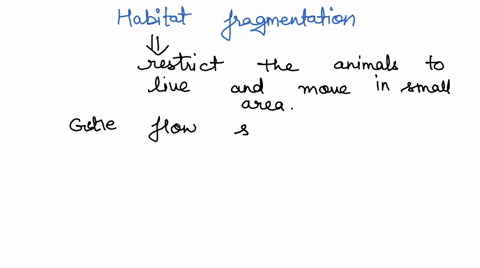 Habitat fragmentation
⇓
restrict the animals to
live and move in small
area.
Gene flow s